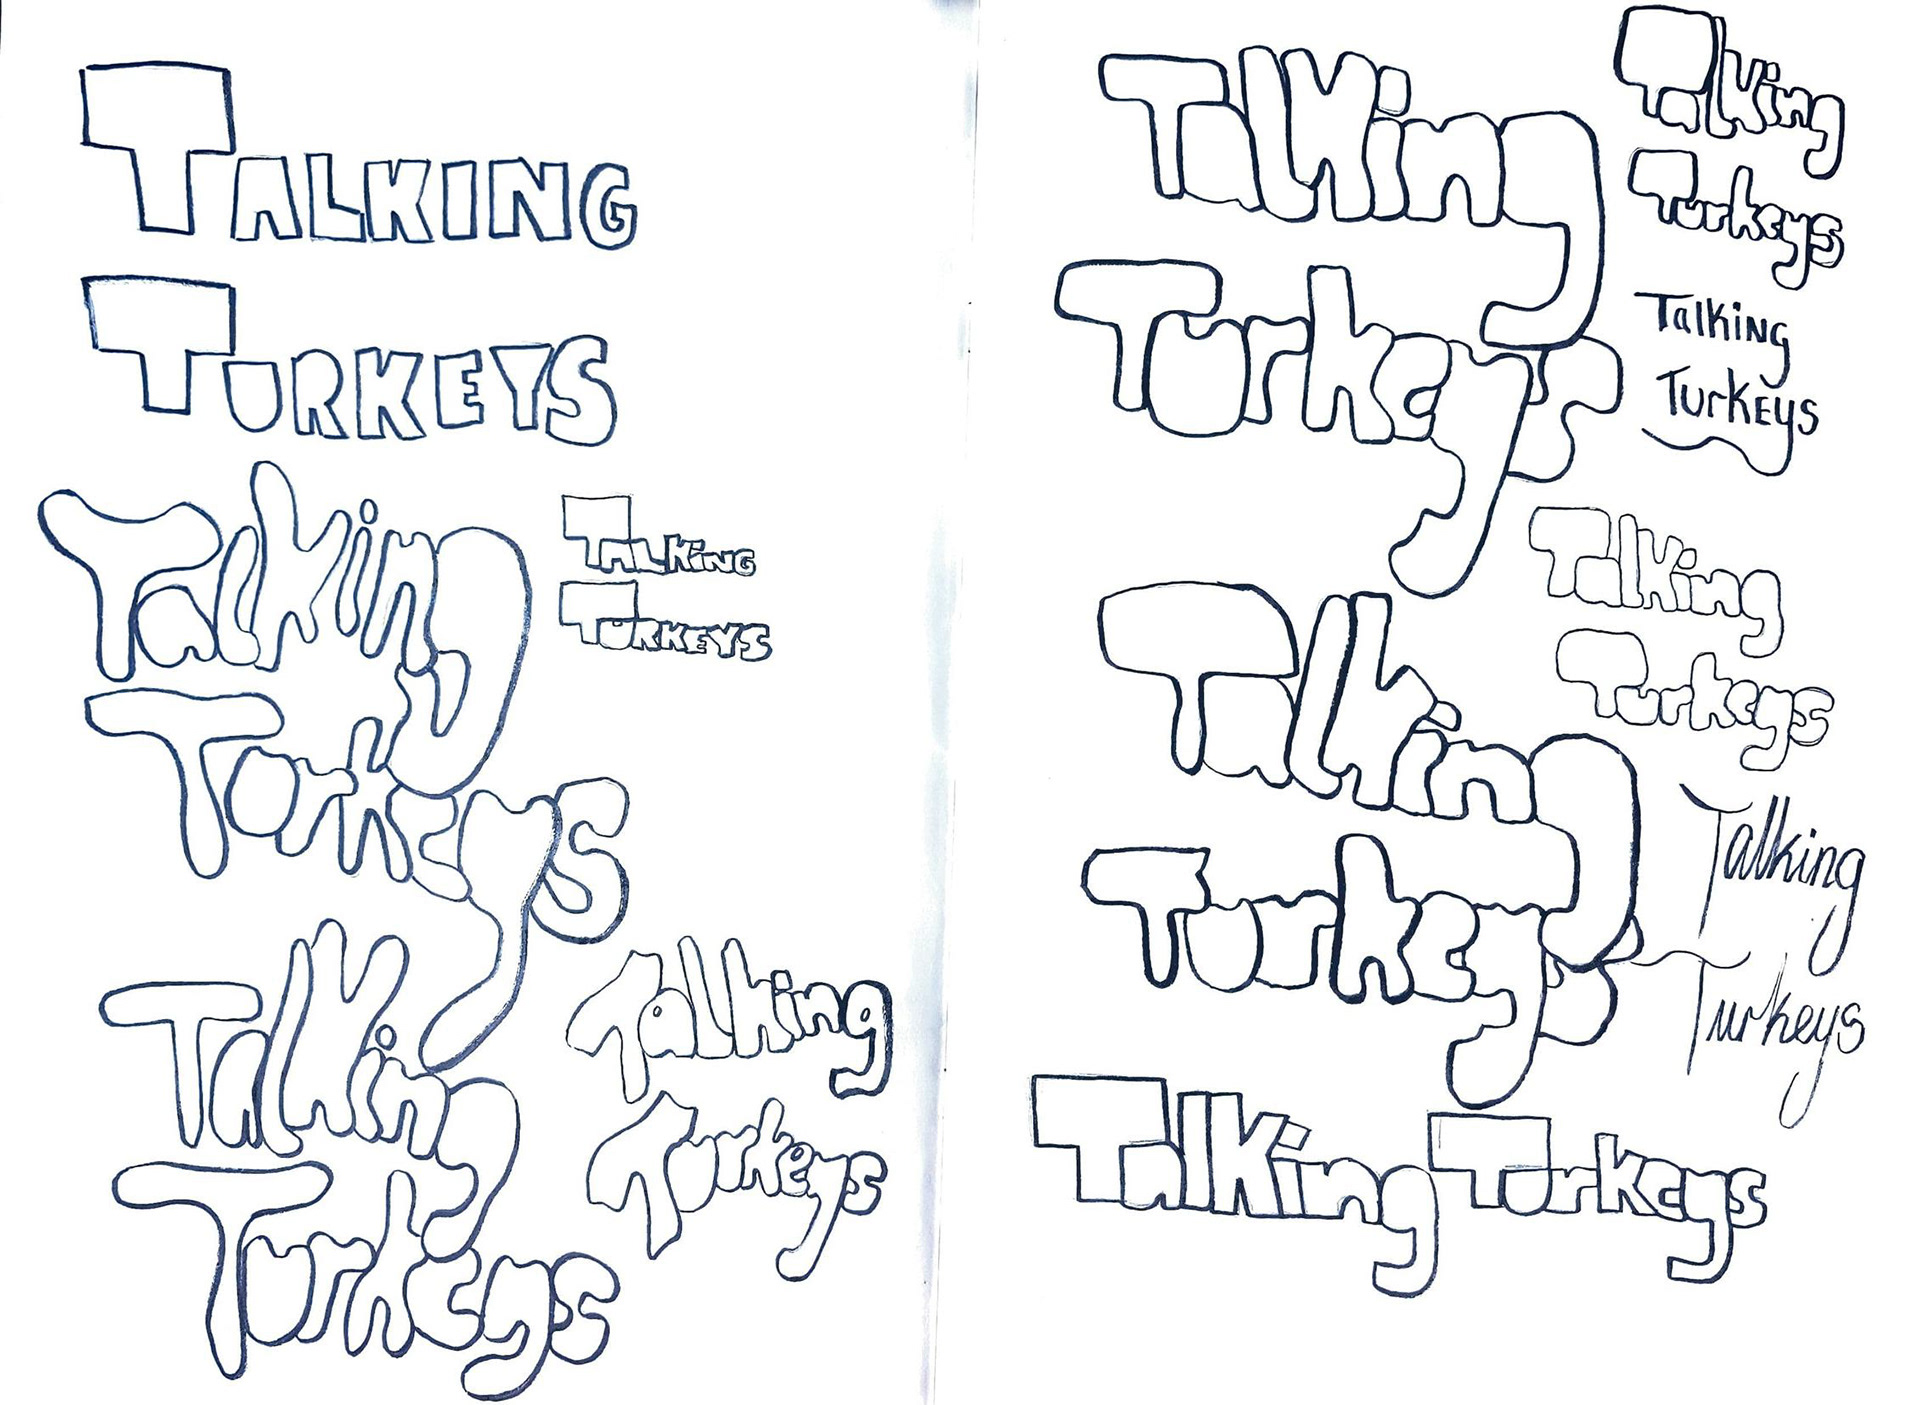 TALKING
TURKEYS
Talking
Turkeys
TALKiNG
TURKEYS
Talking
Turkeys
Talking
Turkeys
Talking
Turkeys
Talking
Turkeys
Talking
Turkeys
Talking
Turkeys
Talking
Turkeys
Talking
Turkeys
Talking
Turkeys
Talking Turkeys